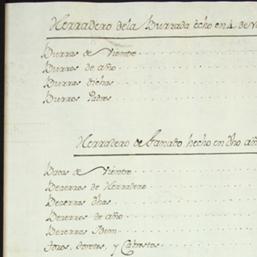 Herradero de la Burrada echo en 4 de
Burras de Vientre
Burros de año
Burras dichas
Burros Padres
Herradero de Ganado hecho en dho añ
Bacas de Vientre
Bezerros de Herradero
Bezerras dhas
Bezerros de año
Bezerras Idem
Toros, Toretes, y Cabestros